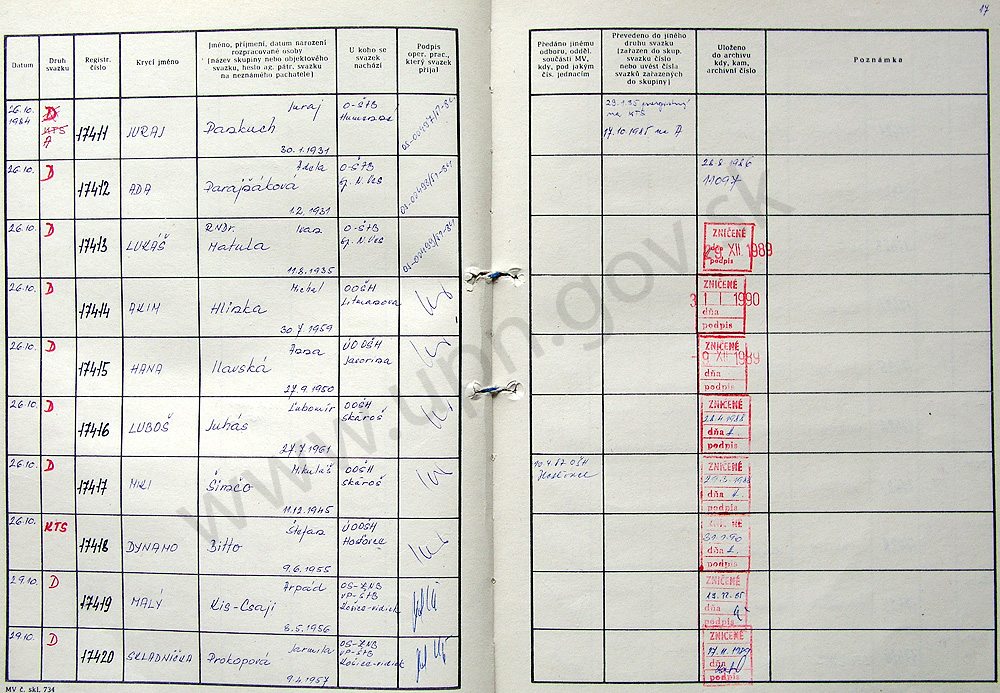 17
Datum
Druh
svazku
Registr.
číslo
Krycí jméno
Jméno, příjmení, datum narození
rozpracované osoby
(název skupiny nebo objektového
svazku, heslo ag. pátr. svazku
na neznámého pachatele)
U koho se
svazek
nachází
Podpis
oper. prac.,
který svazek
přijal
Předáno jinému
odboru, odděl.
součásti MV,
kdy, pod jakým
čís. jednacím
Převedeno do jiného
druhu svazku
(zařazen do skup.
svazku číslo
nebo uvést čísla
svazků zařazených
do skupiny)
Uloženo
do archivu
kdy, kam,
archivní číslo
Poznámka
26.10.
1984
D
KTS
A
17411
JURAJ
Juraj
Paskuch
30.1.1931
O-ŠTB
17.10.1985 na A
26.10.
D
17412
ADA
Adela
Parajšáková
1.2.1931
O-ŠTB
Sp. N. Ves
28.8.1986
11097
26.10.
D
17413
LUKÁŠ
RNDr. Ivan
Matula
11.8.1935
O-ŠTB
Sp. N. Ves
ZNIČENÉ
29. XII. 1989
podpis
26.10.
D
17414
AKIM
Michal
Hliska
30.7.1959
OOŠH
ZNIČENÉ
31 I 1990
dňa
podpis
26.10.
D
17415
HANA
Anna
Ilavská
27.9.1950
ÚOOŠH
ZNIČENÉ
-9 XII 1989
dňa
podpis
26.10.
D
17416
LUBOŠ
Ľubomír
Juhás
27.7.1961
OOŠH
Skároš
ZNIČENÉ
dňa
podpis
26.10.
D
17417
MIKI
Mikuláš
Šimčo
11.12.1945
OOŠH
Skároš
ZNIČENÉ
dňa
podpis
26.10.
KTS
17418
DYNAMO
Štefan
Bitto
9.6.1955
ÚOOŠH
31.1.90
dňa
podpis
29.10.
D
17419
MALÝ
Arpád
Kis-Csaji
8.5.1956
OS-ZNB
VP-ŠTB
Košice-vidiek
ZNIČENÉ
dňa
podpis
29.10.
D
17420
SKLADNIČKA
Jarmila
Prokopová
9.4.1957
OS-ZNB
VP-ŠTB
Košice-vidiek
ZNIČENÉ
dňa
podpis
MV č. skl. 734
www.upn.gov.sk